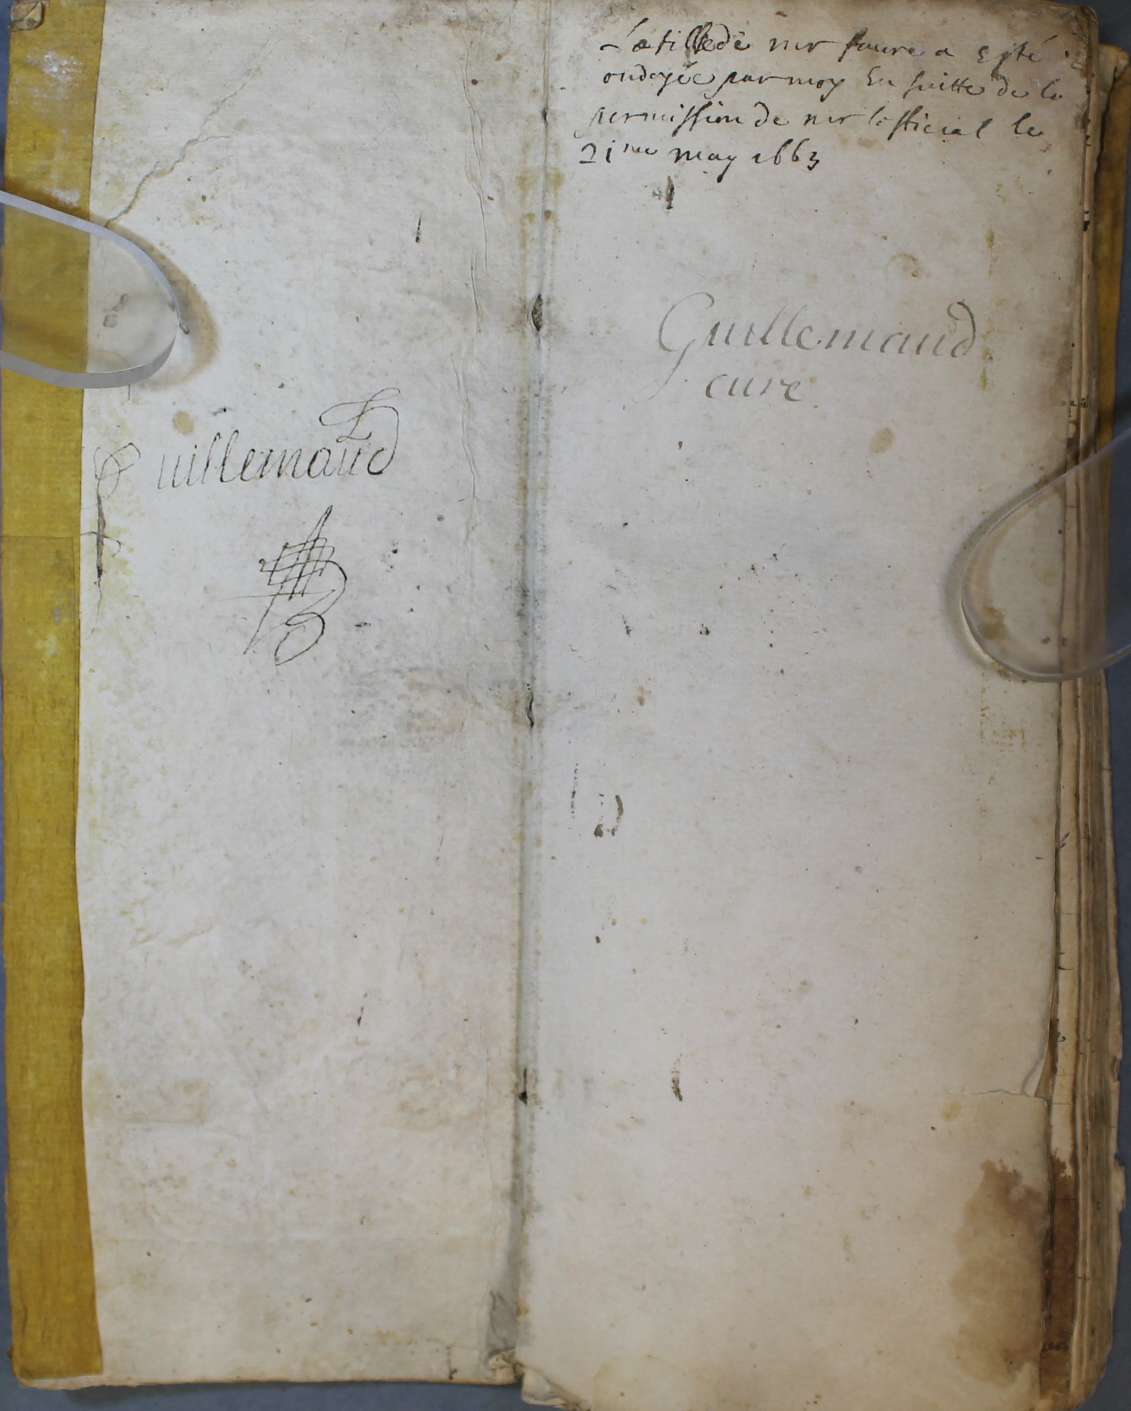 Guillemaud
La fille de mr faure a esté
ondoyée par moy En suitte de la
permission de mr lofficial le
21me may 1663
Guillemaud
cure